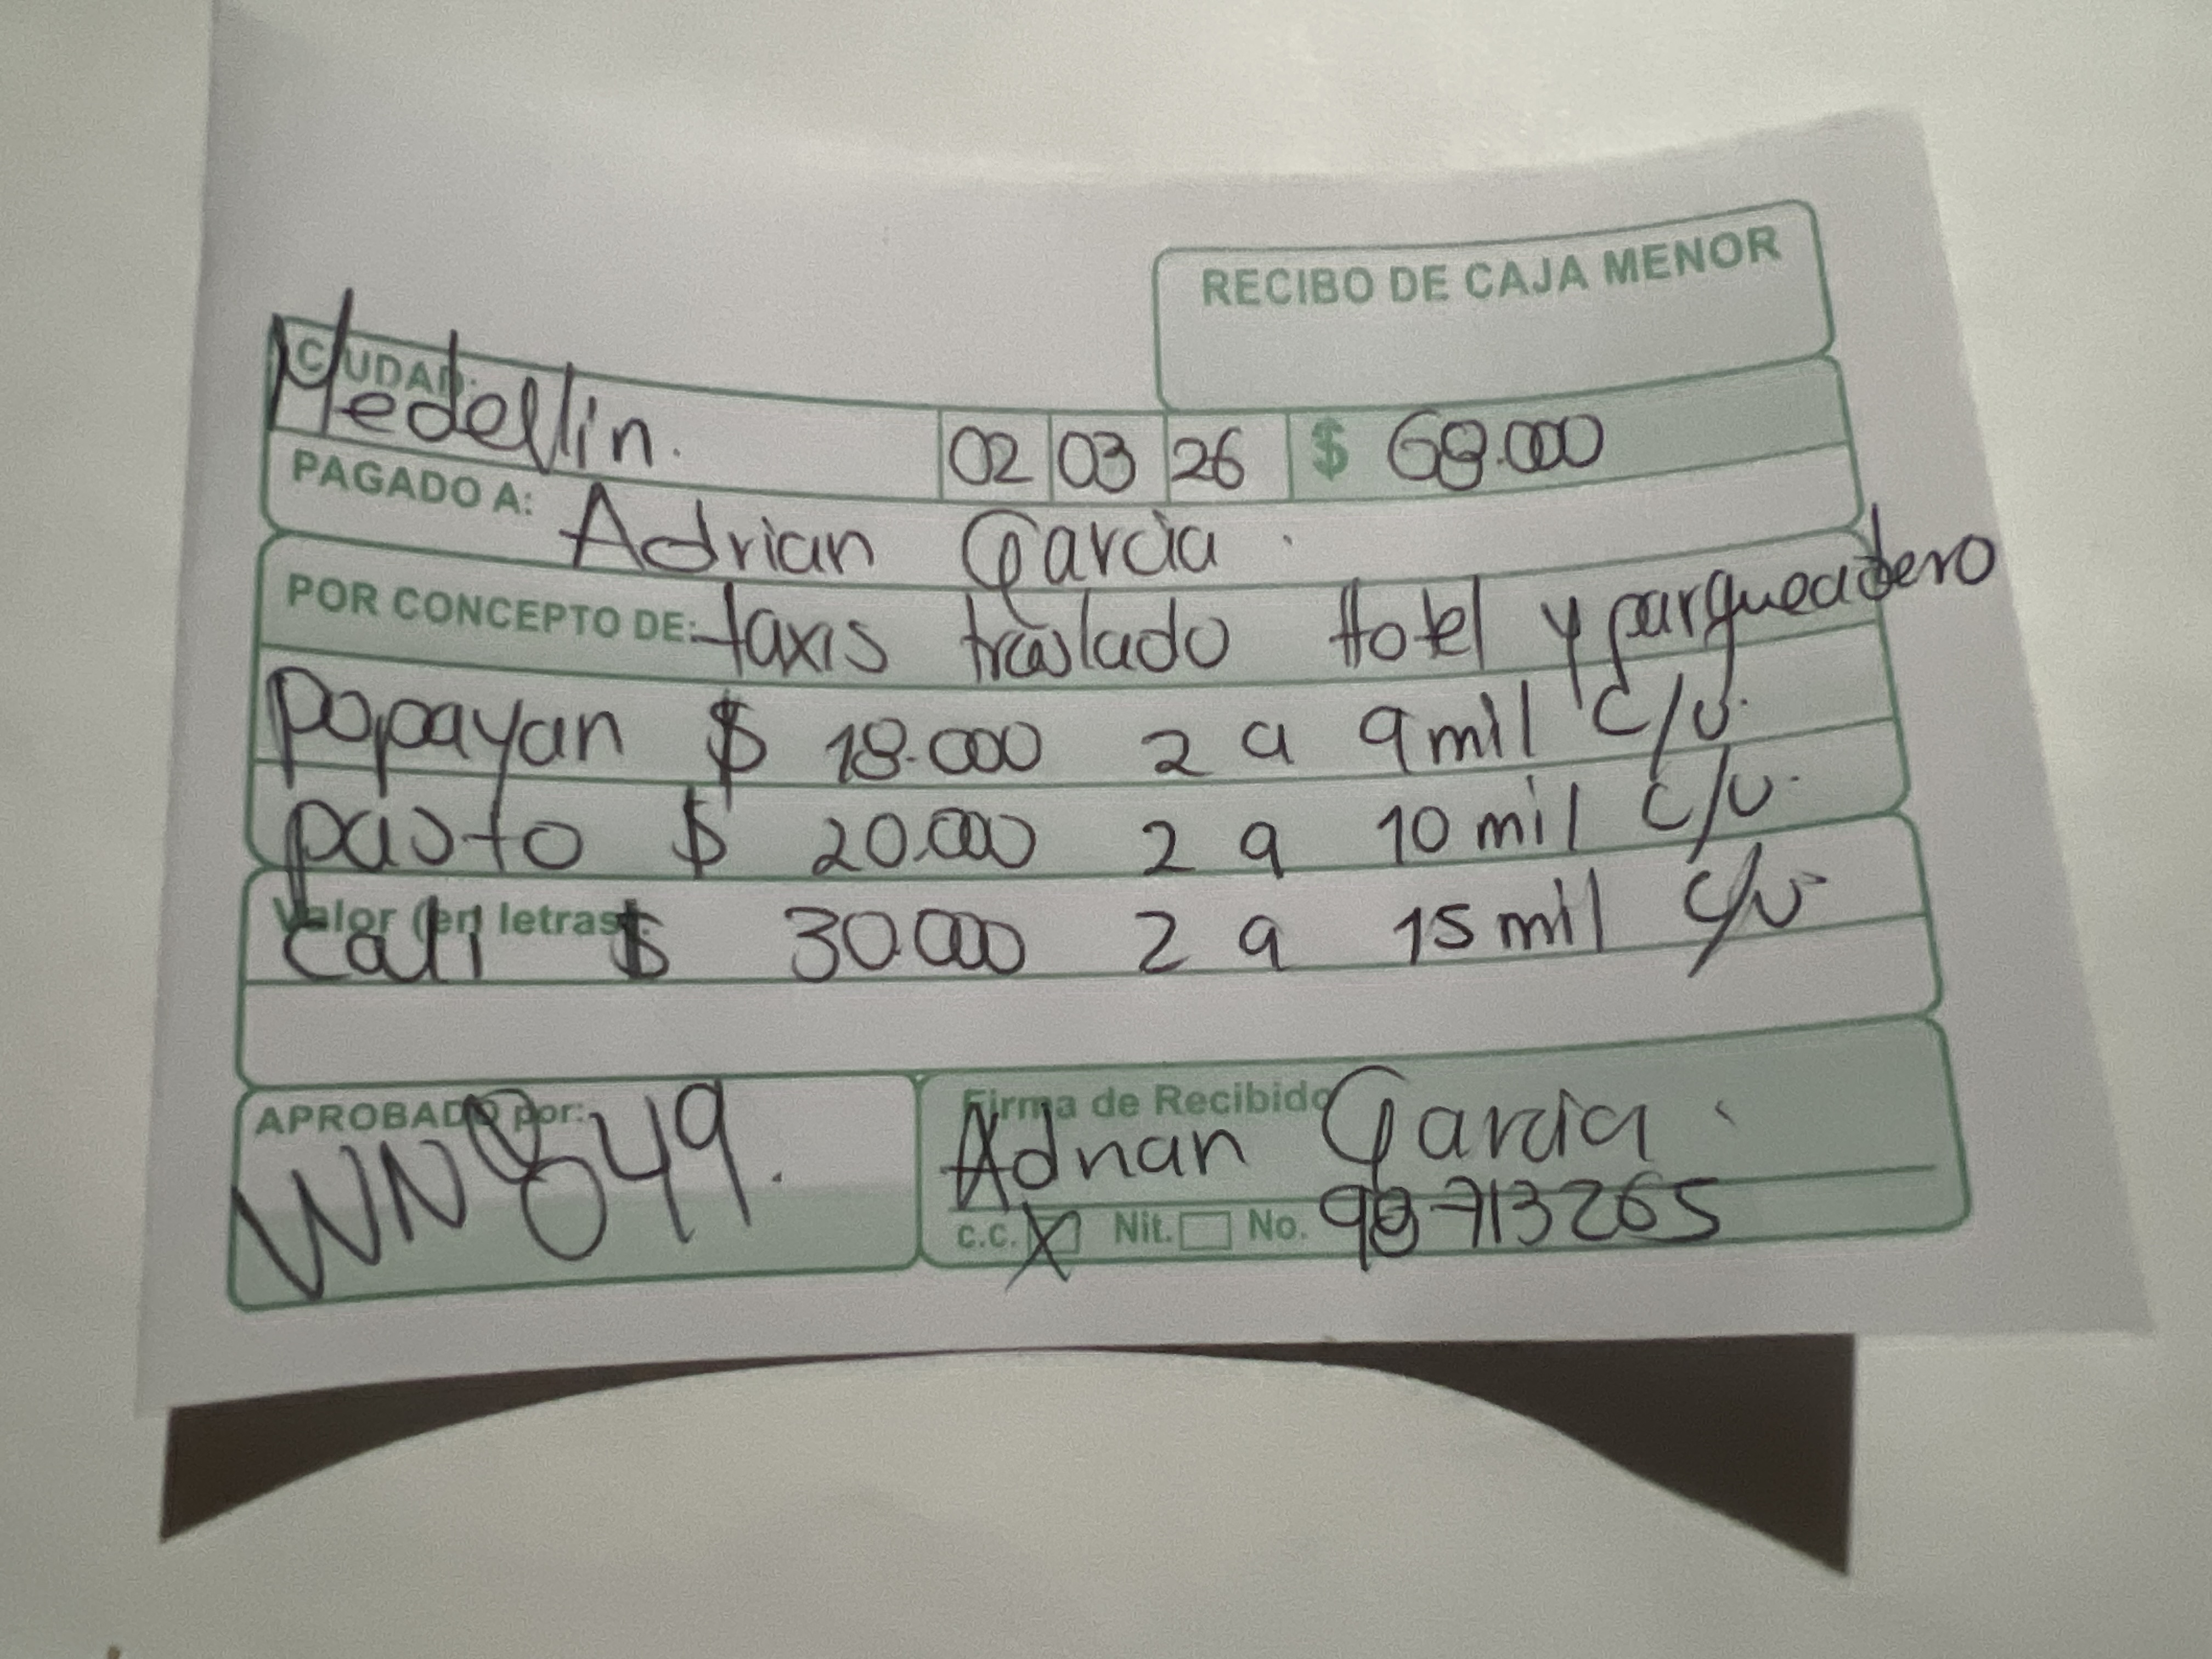 RECIBO DE CAJA MENOR
CIUDAD: Medellin.
02 03 26 $ 68.000
PAGADO A: Adrian Garcia.
POR CONCEPTO DE: taxis traslado Hotel y parqueadero
popayan $ 18.000 2 a 9 mil c/u.
pasto $ 20.000 2 a 10 mil c/u.
Valor (en letras)
cali $ 30.000 2 a 15 mil c/u
APROBADO por:
Firma de Recibido
Adrian Garcia.
c.c. X Nit. No. 98713265